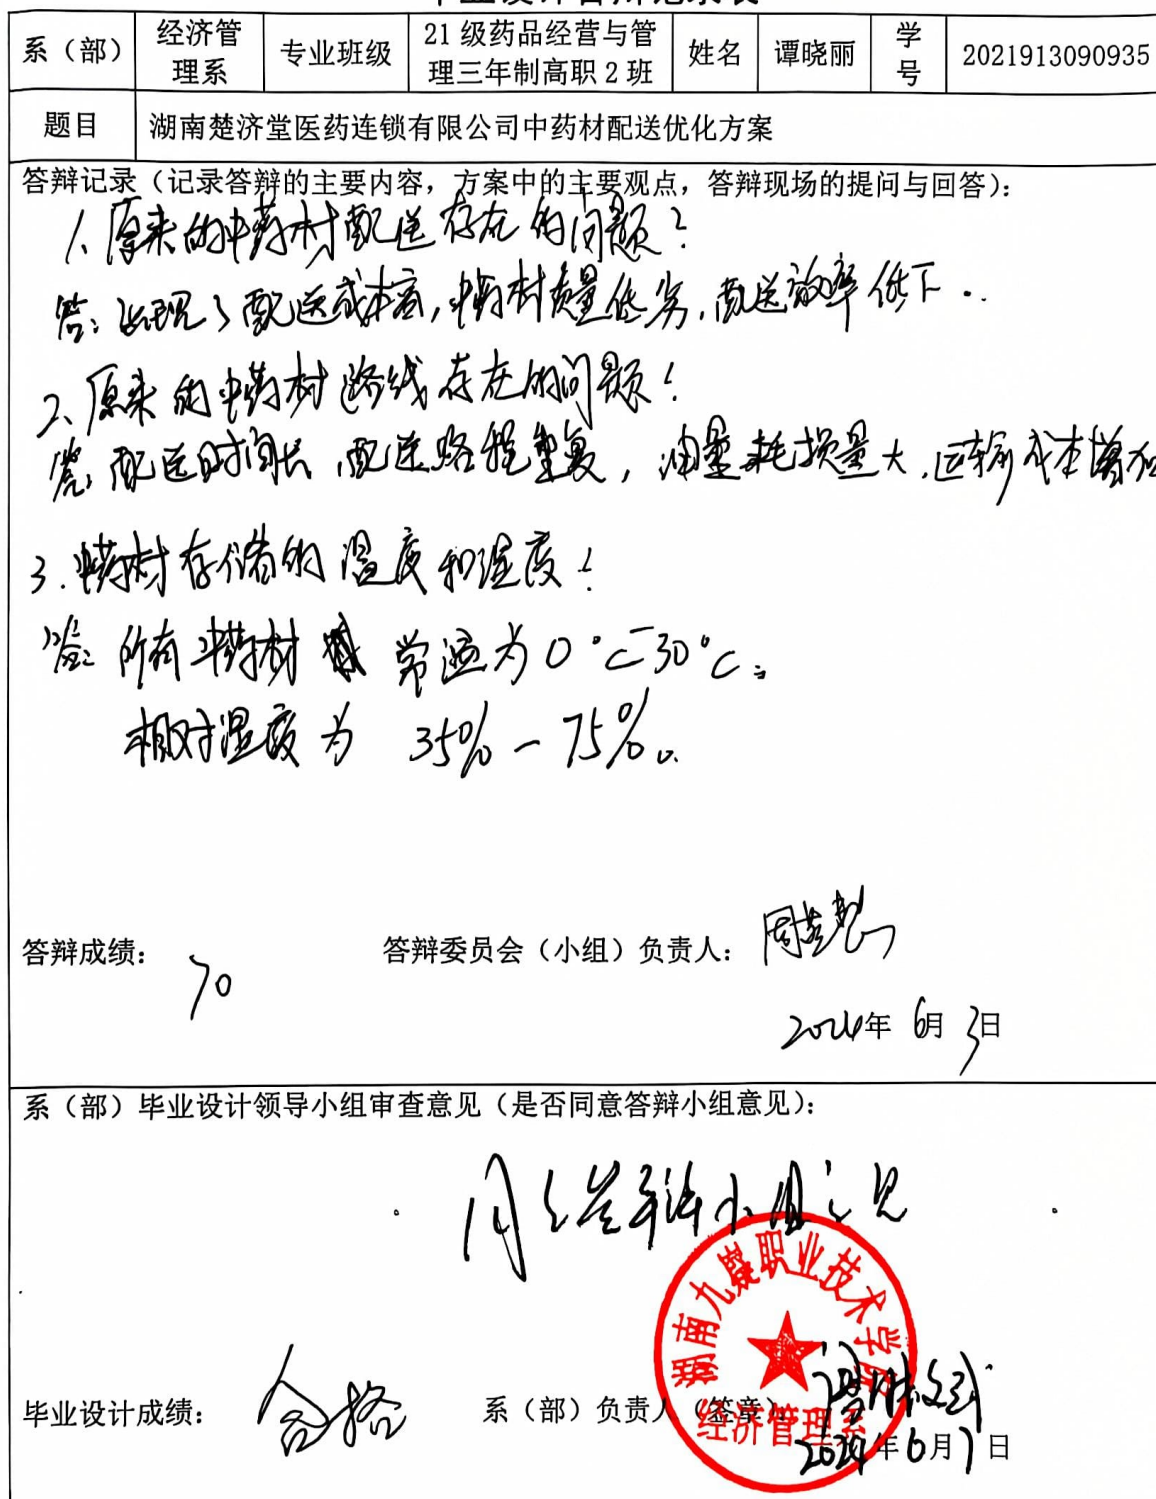 系（部） 经济管理系 专业班级 21级药品经营与管理三年制高职2班 姓名 谭晓丽 学号 2021913090935
题目 湖南楚济堂医药连锁有限公司中药材配送优化方案
答辩记录（记录答辩的主要内容，方案中的主要观点，答辩现场的提问与回答）：
1、原来的中药材配送存在的问题？
答：出现了配送成本高，中药材质量低劣，配送效率低下。
2、原来的中药材路线存在的问题？
答：配送时间长，配送路程重复，油量耗损量大，运输成本增加
3、中药材存储的温度和湿度？
答：所有中药材 常温为0℃-30℃；
相对湿度为 35%-75%。
答辩成绩： 70 答辩委员会（小组）负责人：
2024年6月3日
系（部）毕业设计领导小组审查意见（是否同意答辩小组意见）：
同意答辩小组意见
湖南九嶷职业技术学院
经济管理系
毕业设计成绩： 合格 系（部）负责人（签章）：
2024年6月7日